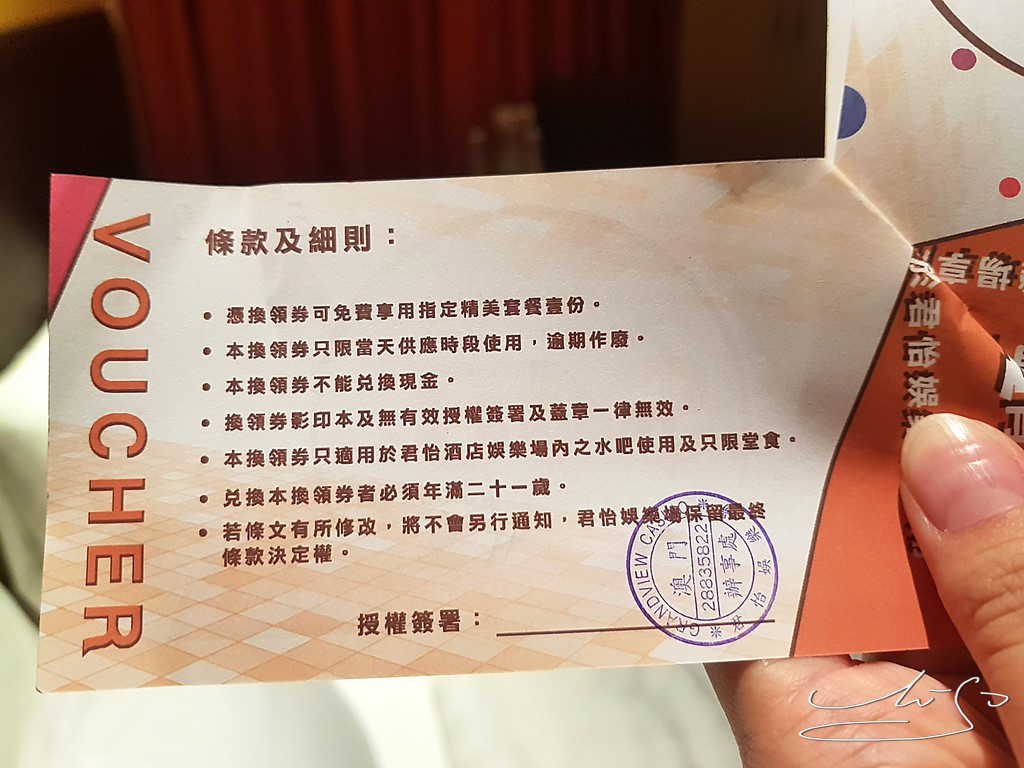 VOUCHER
條款及細則：
• 憑換領券可免費享用指定精美套餐壹份。
• 本換領券只限當天供應時段使用，逾期作廢。
• 本換領券不能兌換現金。
• 換領券影印本及無有效授權簽署及蓋章一律無效。
• 本換領券只適用於君怡酒店娛樂場內之水吧使用及只限堂食。
• 兌換本換領券者必須年滿二十一歲。
• 若條文有所修改，將不會另行通知，君怡娛樂場保留最終
條款決定權。
授權簽署：
GRANDVIEW CASINO
澳門
28835822
辦事處
君怡娛樂
君怡娛
場享